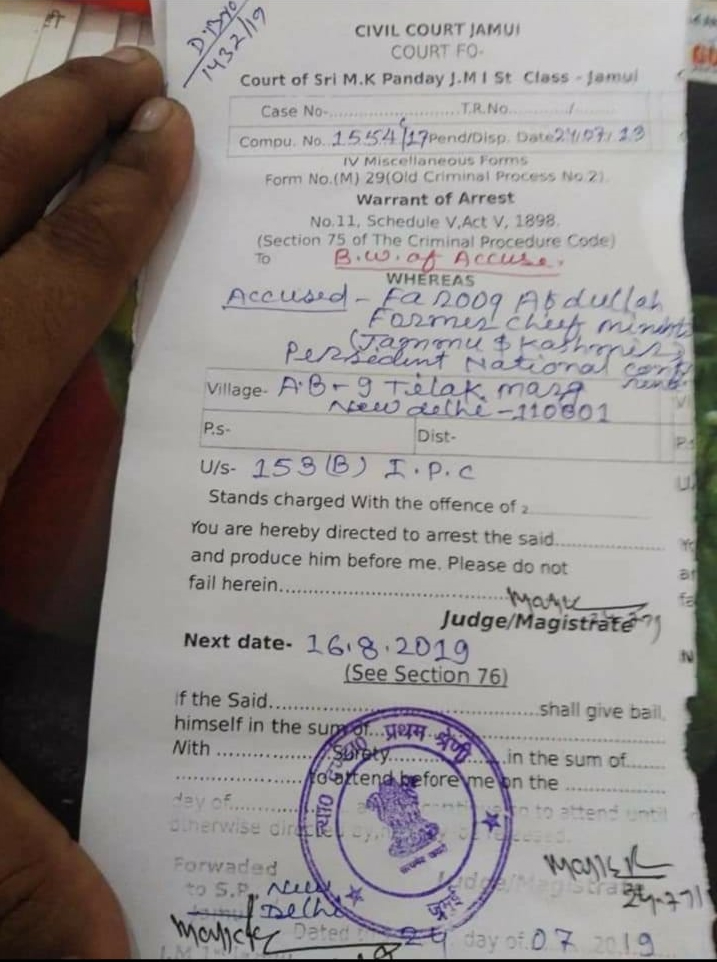 D.B.No
1432/19
CIVIL COURT JAMUI
COURT FO-
Court of Sri M.K Panday J.M I St Class - Jamui
Case No-........................T.R.No............/.......
Compu. No. 1554/17 Pend/Disp. Date 24/07/19
IV Miscellaneous Forms
Form No.(M) 29(Old Criminal Process No.2).
Warrant of Arrest
No.11, Schedule V,Act V, 1898.
(Section 75 of The Criminal Procedure Code)
To B.W. of Accuse.
WHEREAS
Accused - Farooq Abdullah
Former Chief minist
(Jammu & Kashmir)
Persedent National conf
Village- A-B-9 Tilak marg
New delhi -110001
P.s- Dist-
U/s- 153(B) I.P.C
Stands charged With the offence of 2
You are hereby directed to arrest the said......................
and produce him before me. Please do not
fail herein..........................................
Judge/Magistrate
Next date- 16.8.2019
(See Section 76)
if the Said..................................................shall give bail.
himself in the sum of.......................................
With ................Surety......................in the sum of.......
........................to attend before me on the ................
day of.................. to attend until
otherwise directed by,
प्रथम श्रेणी
जमुई
Forwaded Judge/Magistrate
to S.P. New
Delhi
Jamui
Dated 24 day of 07 2019